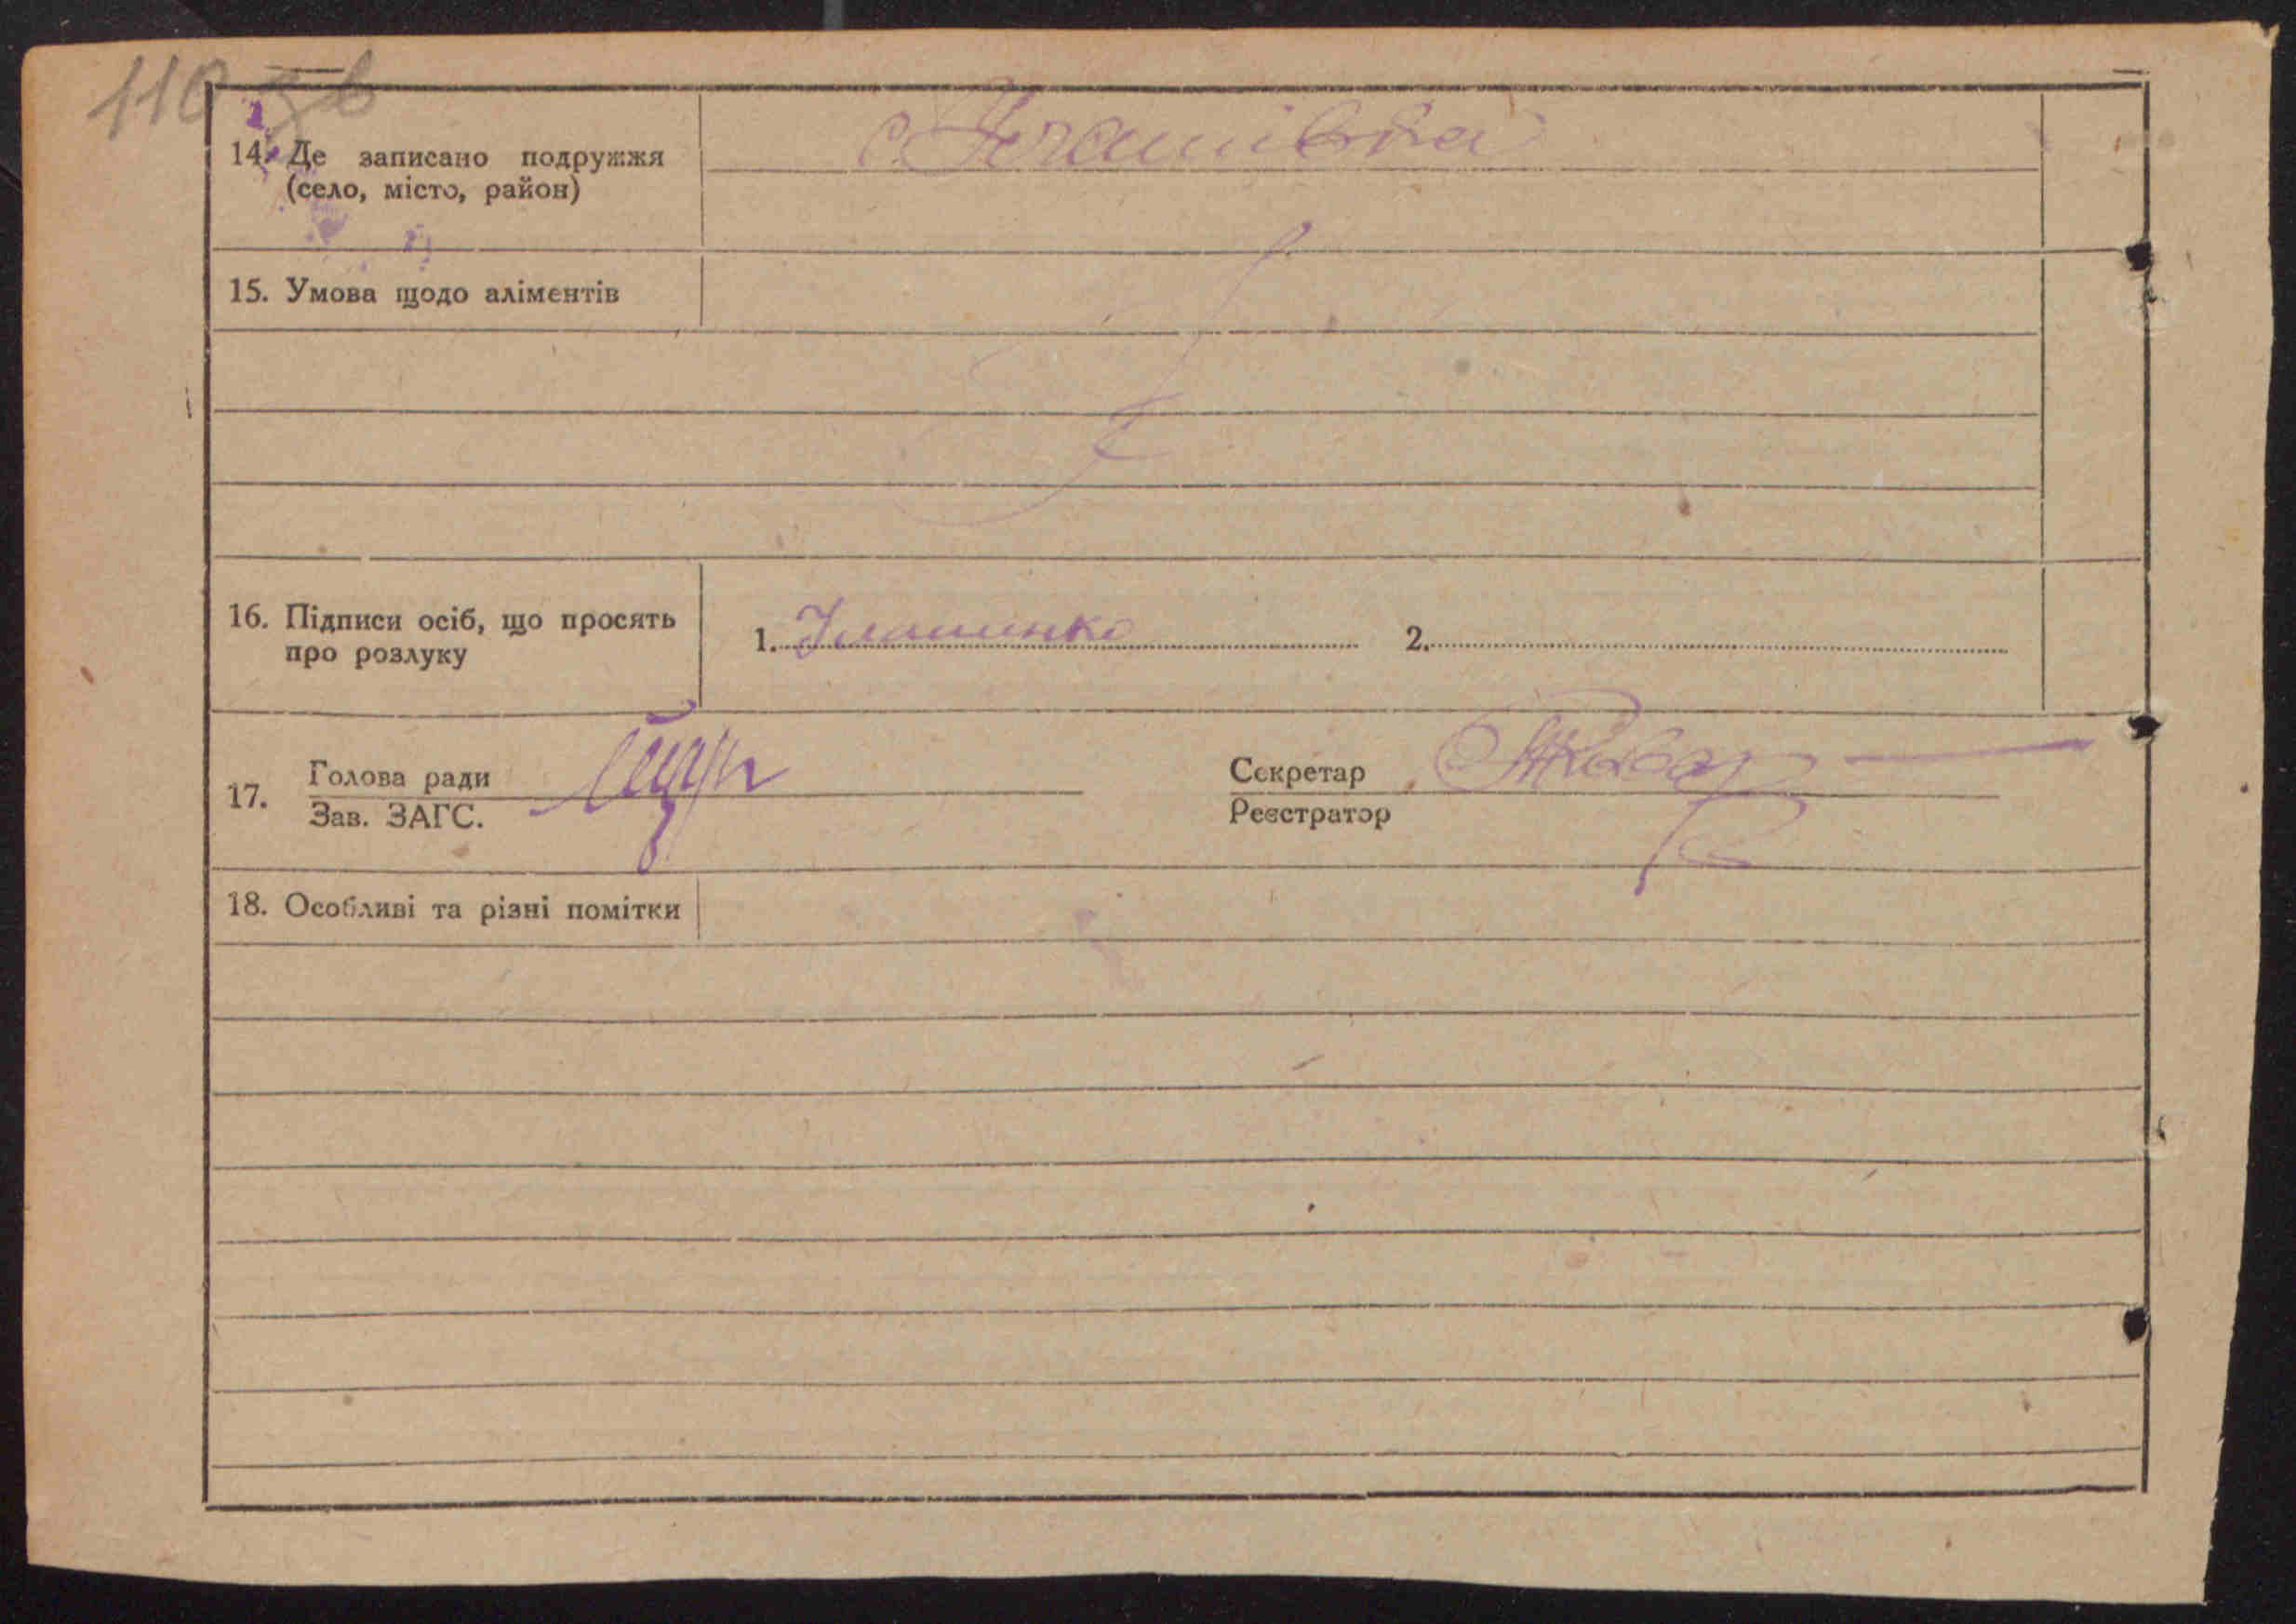 110 зв
14. Де записано подружжя
(село, місто, район)
с.
15. Умова щодо аліментів
16. Підписи осіб, що просять
про розлуку
1. 2.
17. Голова ради
Зав. ЗАГС.
Секретар
Реєстратор
18. Особливі та різні помітки